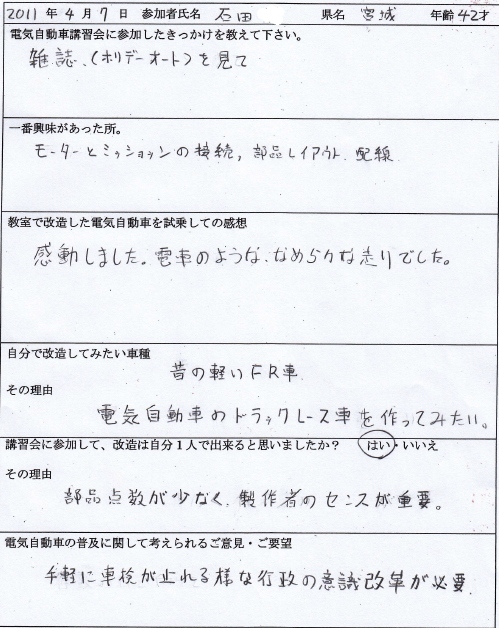 2011 年 4 月 7 日 参加者氏名 石田 県名 宮城 年齢 42才
電気自動車講習会に参加したきっかけを教えて下さい。
雑誌、(ホリデーオート)を見て
一番興味があった所。
モーターとミッションの接続, 部品レイアウト、配線
教室で改造した電気自動車を試乗しての感想
感動しました。電車のような、なめらかな走りでした。
自分で改造してみたい車種
昔の軽いFR車
その理由
電気自動車のドラックレース車を作ってみたい。
講習会に参加して、改造は自分1人で出来ると思いましたか? はい・いいえ
その理由
部品点数が少なく、製作者のセンスが重要。
電気自動車の普及に関して考えられるご意見・ご要望
手軽に車検が取れる様な行政の意識改革が必要